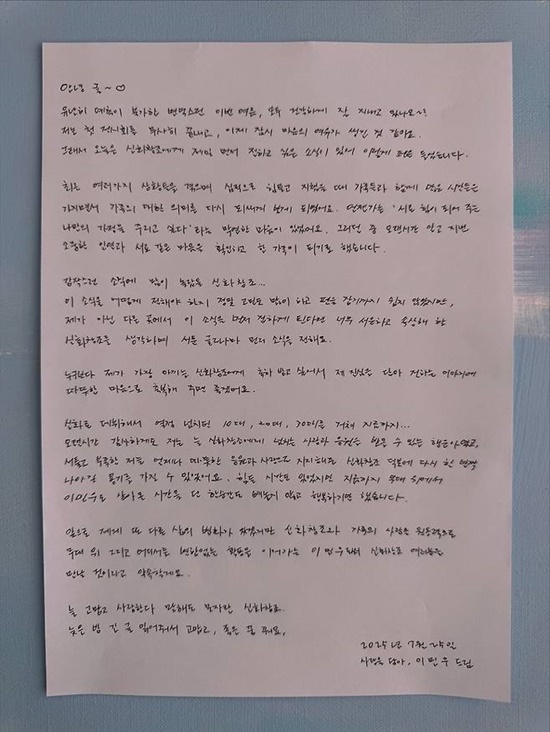 안녕 글~♡
유난히 더웠이 변덕스런 이번 여름, 모두 건강하게 잘 지내고 있나요~?
저는 첫 전시회를 무사히 끝내고, 이제 잠시 마음의 여유가 생긴 것 같아요.
그래서 오늘은 신화창조에게 제일 먼저 전하고 싶은 소식이 있어 이렇게 펜을 들었습니다.
최근 여러가지 상황들을 겪으며 심적으로 힘들고 지쳤을 때 가족들과 함께 많은 시간들을
가지면서 가족의 대한 의미를 다시 되새기게 되었어요. 언젠가는 '서로 힘이 되어 주는
나만의 가정을 꾸리고 싶다'라는 막연한 마음이 있었어요. 그러던 중 오랜시간 알고 지낸
소중한 인연과 서로 같은 마음을 확인하고 한 가족이 되기로 했습니다.
갑작스런 소식에 많이 놀랐을 신화창조...
이 소식을 어떻게 전해야 하지 정말 고민도 많이 하고 펜을 잡기까지 쉽지 않았지만,
제가 아닌 다른 곳에서 이 소식을 먼저 접하게 된다면 너무 서운하고 속상해 할
신화창조를 생각하며 서툰 글로나마 먼저 소식을 전해요.
누구보다 제가 가장 아끼는 신화창조에게 축하 받고 싶어서 제 진심을 담아 전하는 이야기에
따뜻한 마음으로 축복해 주면 좋겠어요.
신화로 데뷔해서 열정 넘치던 10대, 20대, 30대를 거쳐 지금까지...
오랜시간 감사하게도 저는 늘 신화창조에게 넘치는 사랑과 응원을 받을 수 있는 행운아였고,
서툴고 부족한 저를 언제나 따뜻한 응원과 사랑으로 지지해주는 신화창조 덕분에 다시 한 번
나아갈 용기를 가질 수 있었어요. 힘든 시간도 있었지만 지금까지 무대 위에서
이민우로 살아온 시간을 단 한순간도 빼놓지 않고 행복하기만 했습니다.
앞으로 제게 또 다른 삶의 변화가 찾겠지만 신화창조와 가족의 사랑을 원동력으로
무대 위 그리고 어디서든 변함없는 활동을 이어가는 이민우로써 신화창조 여러분을
만날 것이라고 약속할게요.
늘 고맙고 사랑한다 말해도 모자란 신화창조.
늦은 밤 긴 글 읽어줘서 고맙고, 좋은 꿈 꿔요.
2025년 7월 25일
사랑을 담아, 이민우 드림